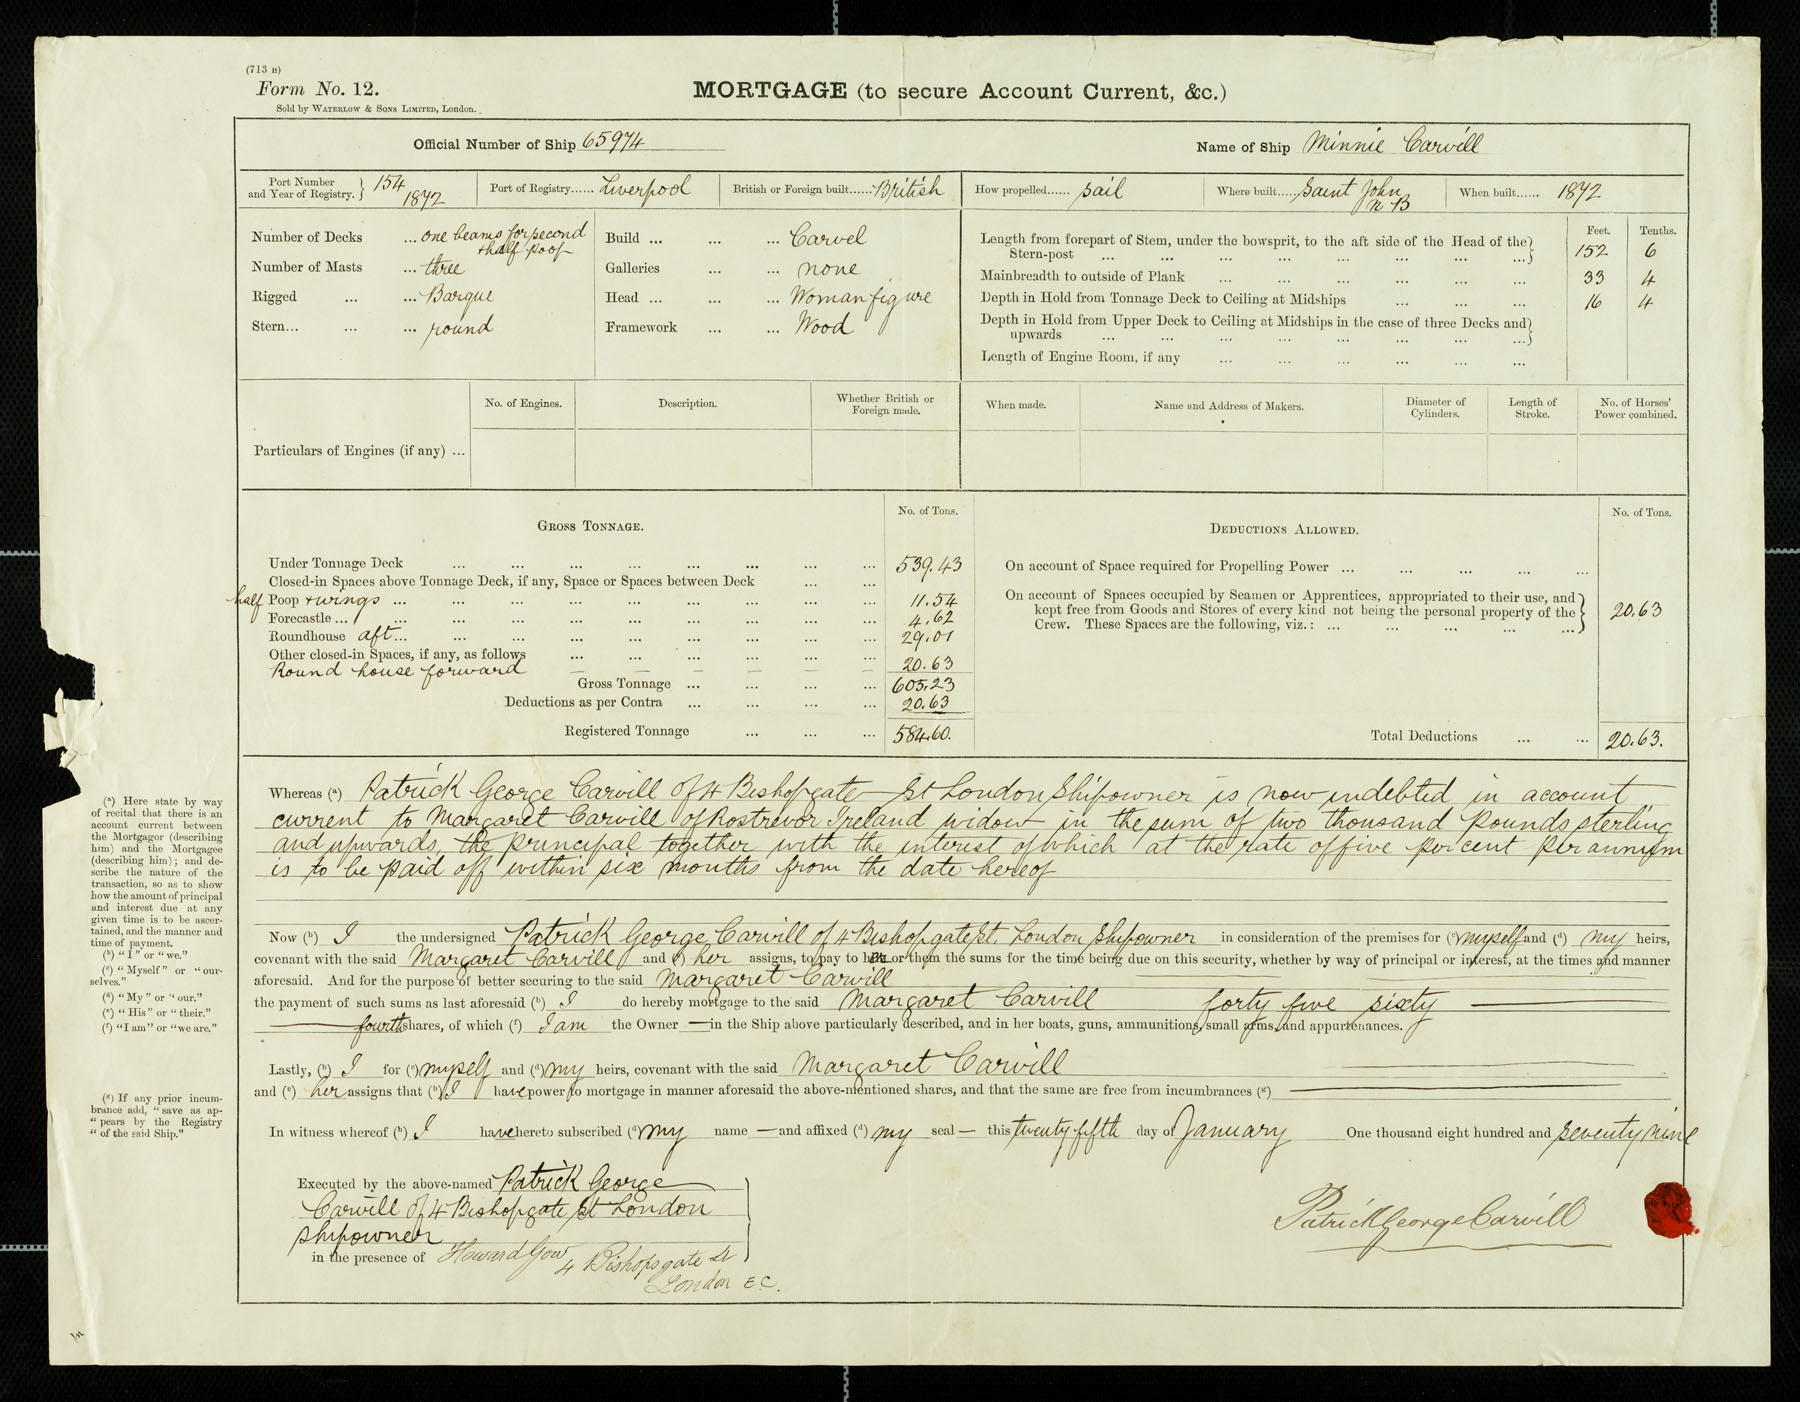 (713 B)
Form No. 12.
Sold by WATERLOW & SONS LIMITED, London.
MORTGAGE (to secure Account Current, &c.)
Official Number of Ship 65974
Name of Ship Minnie Carvill
Port Number and Year of Registry. } 154 1872
Port of Registry...... Liverpool
British or Foreign built...... British
How propelled...... Sail
Where built..... Saint John N B
When built...... 1872
Number of Decks ... one beams for second + half poop
Number of Masts ... three
Rigged ... ... Barque
Stern... ... ... round
Build ... ... ... Carvel
Galleries ... ... none
Head ... ... ... Woman figure
Framework ... ... Wood
Feet. Tenths.
Length from forepart of Stem, under the bowsprit, to the aft side of the Head of the
Stern-post ... ... ... ... ... ... ... ...} 152 6
Mainbreadth to outside of Plank ... ... ... ... ... ... 33 4
Depth in Hold from Tonnage Deck to Ceiling at Midships ... ... ... 16 4
Depth in Hold from Upper Deck to Ceiling at Midships in the case of three Decks and
upwards ... ... ... ... ... ... ... ...}
Length of Engine Room, if any ... ... ... ... ... ...
Particulars of Engines (if any) ...
No. of Engines.
Description.
Whether British or Foreign made.
When made.
Name and Address of Makers.
Diameter of Cylinders.
Length of Stroke.
No. of Horses' Power combined.
GROSS TONNAGE.
No. of Tons.
Under Tonnage Deck ... ... ... ... ... ... ... ... 539.43
Closed-in Spaces above Tonnage Deck, if any, Space or Spaces between Deck ... ...
half Poop + wings ... ... ... ... ... ... ... ... ... 11.54
Forecastle ... ... ... ... ... ... ... ... ... 4.62
Roundhouse aft ... ... ... ... ... ... ... ... ... 29.01
Other closed-in Spaces, if any, as follows ... ... ... ... ... ... 20.63
Round house forward
Gross Tonnage ... ... ... ... 605.23
Deductions as per Contra ... ... ... ... 20.63
Registered Tonnage ... ... ... 584.60.
DEDUCTIONS ALLOWED.
No. of Tons.
On account of Space required for Propelling Power ... ... ... ... ...
On account of Spaces occupied by Seamen or Apprentices, appropriated to their use, and
kept free from Goods and Stores of every kind not being the personal property of the
Crew. These Spaces are the following, viz.: ... ... ... ... ...} 20.63
Total Deductions ... ... 20.63.
Whereas (a) Patrick George Carvill of 4 Bishopgate St London Shipowner is now indebted in account
current to Margaret Carvill of Rostrevor Ireland widow in the sum of two thousand pounds sterling
and upwards, the principal together with the interest of which at the rate of five per cent per annum
is to be paid off within six months from the date hereof
Now (b) I the undersigned Patrick George Carvill of 4 Bishopgate St. London Shipowner in consideration of the premises for (c) myself and (d) my heirs,
covenant with the said Margaret Carvill and (e) her assigns, to pay to her or them the sums for the time being due on this security, whether by way of principal or interest, at the times and manner
aforesaid. And for the purpose of better securing to the said Margaret Carvill
the payment of such sums as last aforesaid (b) I do hereby mortgage to the said Margaret Carvill forty five sixty
fourth shares, of which (f) I am the Owner — in the Ship above particularly described, and in her boats, guns, ammunition, small arms, and appurtenances.
Lastly, (b) I for (c) myself and (d) my heirs, covenant with the said Margaret Carvill
and (e) her assigns that (b) I have power to mortgage in manner aforesaid the above-mentioned shares, and that the same are free from incumbrances (g)
In witness whereof (b) I have hereto subscribed (d) my name — and affixed (d) my seal — this twenty fifth day of January One thousand eight hundred and seventy nine
Executed by the above-named Patrick George
Carvill of 4 Bishopgate St London
Shipowner
in the presence of Howard Gow
4 Bishopsgate St
London E C.
Patrick George Carvill
(a) Here state by way
of recital that there is an
account current between
the Mortgagor (describing
him) and the Mortgagee
(describing him); and de-
scribe the nature of the
transaction, so as to show
how the amount of principal
and interest due at any
given time is to be ascer-
tained, and the manner and
time of payment.
(b) "I" or "we."
(c) "Myself" or "our-
selves."
(d) "My" or "our."
(e) "His" or "their."
(f) "I am" or "we are."
(g) If any prior incum-
brance add, "save as ap-
"pears by the Registry
"of the said Ship."